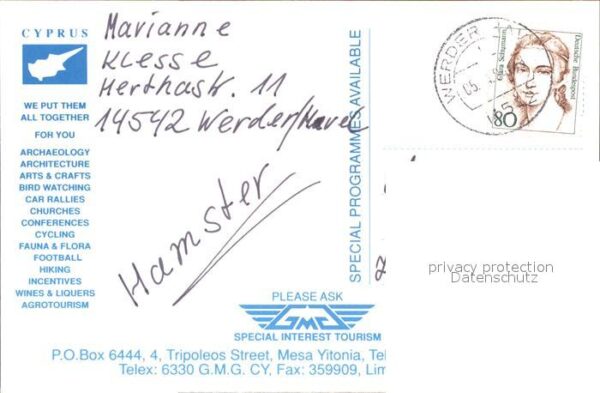 CYPRUS
WE PUT THEM
ALL TOGETHER
FOR YOU
ARCHAEOLOGY
ARCHITECTURE
ARTS & CRAFTS
BIRD WATCHING
CAR RALLIES
CHURCHES
CONFERENCES
CYCLING
FAUNA & FLORA
FOOTBALL
HIKING
INCENTIVES
WINES & LIQUERS
AGROTOURISM
Marianne
Klesse
Herthastr. 11
14542 Werder/Havel
Hamster
SPECIAL PROGRAMMES AVAILABLE
WERDER
05.
80
Clara Schumann
Deutsche Bundespost
privacy protection
Datenschutz
PLEASE ASK
GMG
SPECIAL INTEREST TOURISM
P.O.Box 6444, 4, Tripoleos Street, Mesa Yitonia, Tel
Telex: 6330 G.M.G. CY, Fax: 359909, Lim